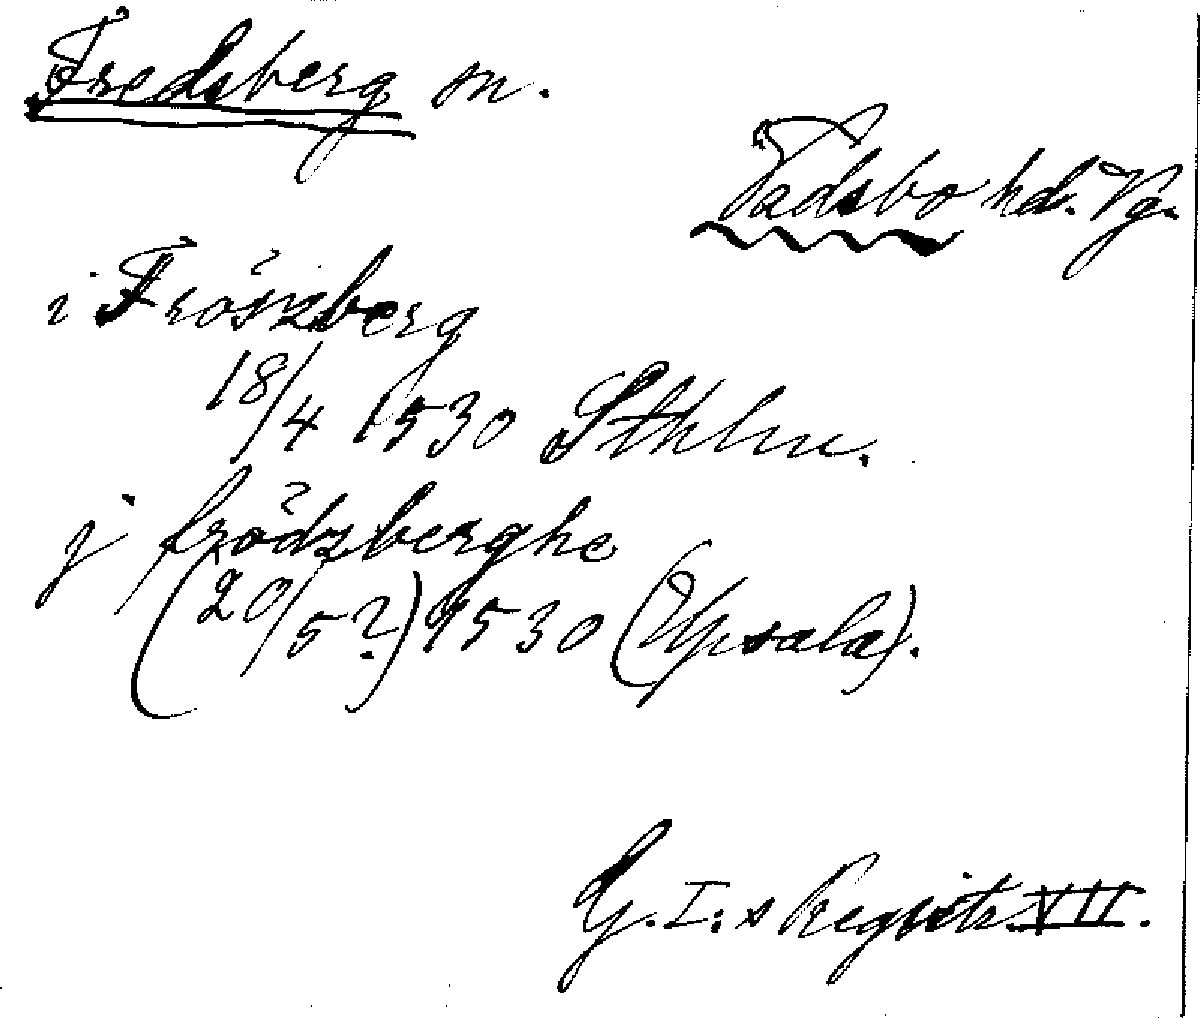 Fredsberg sn.
Vadsbo hd. Vg.
i Fröszberg
18/4 1530 Sthlm.
j frödzberghe
(20/5?) 1530 (Upsala).
G. I:s Registr. VII.